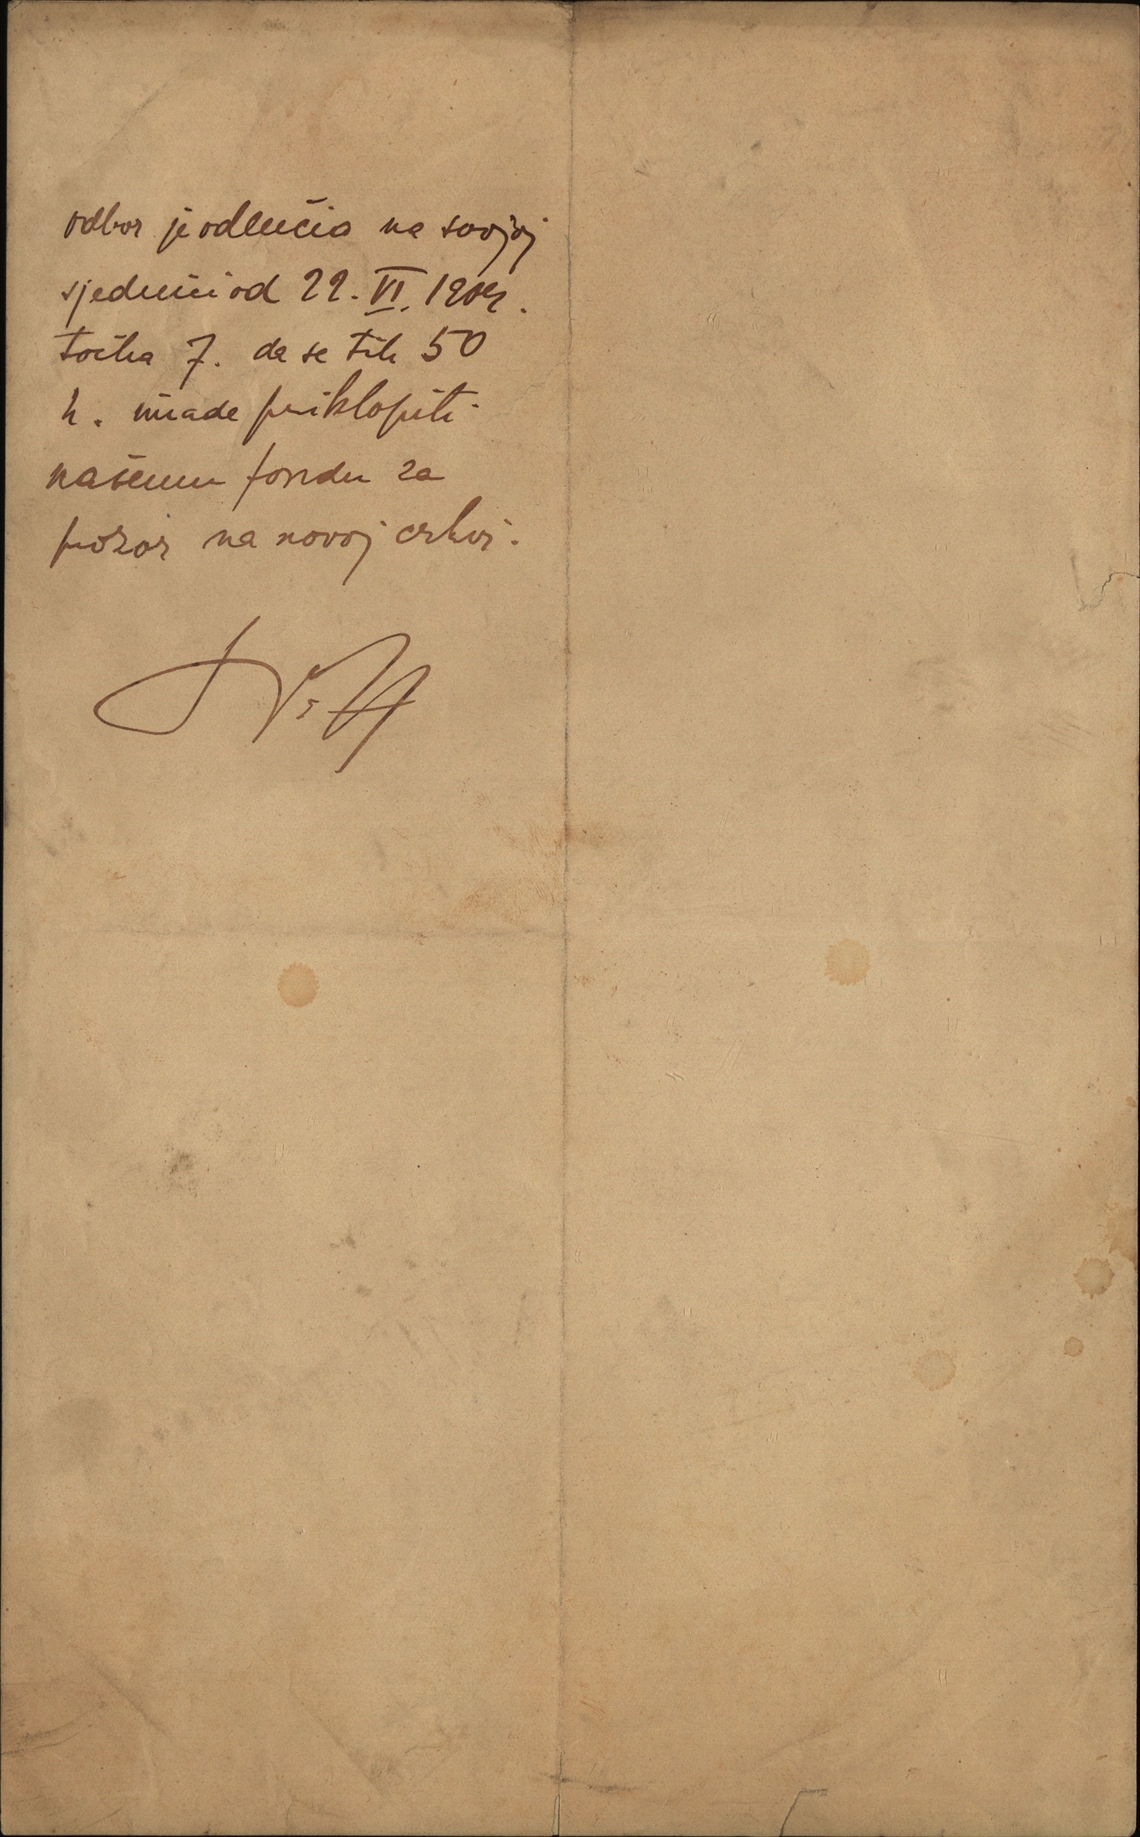 odbor je odlučio na svojoj
sjednici od 22. VI. 1904.
točka 7. da se tih 50
k. imade priklopiti
našemu fondu za
prozor na novoj crkvi.